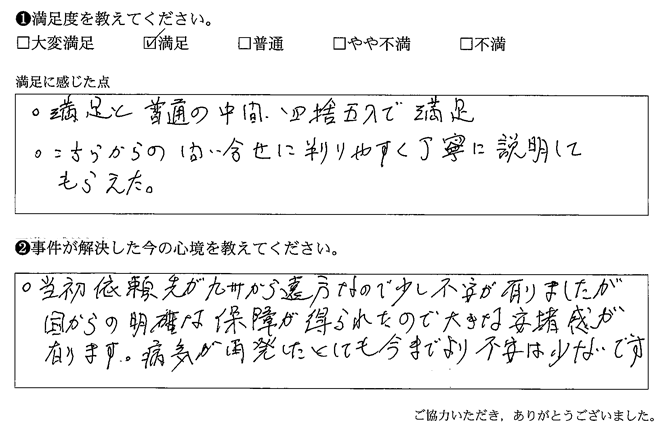 ❶満足度を教えてください。
□大変満足 ☑満足 □普通 □やや不満 □不満
満足に感じた点
○満足と普通の中間、四捨五入で満足
○こちらからの問い合せに判りやすく丁寧に説明して
もらえた。
❷事件が解決した今の心境を教えてください。
○当初依頼先が九州から遠方なので少し不安が有りましたが
国からの明確な保障が得られたので大きな安堵感が
有ります。病気が再発したとしても今までより不安は少ないです
ご協力いただき，ありがとうございました。